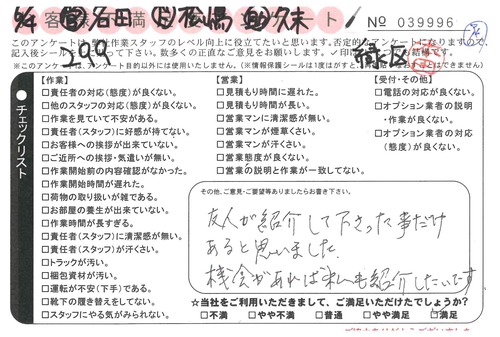 9/4 石田 久保
お客様不満足アンケート! No 039996
このアンケートは弊社作業スタッフのレベル向上に役立てたいと思います。否定的なアンケートになりますので、
299 緑区
※このアンケートは、アンケート目的以外には使用いたしません。
チェックリスト
【作業】
□責任者の対応(態度)が良くない。
□他のスタッフの対応(態度)が良くない。
□作業を見ていて不安がある。
□責任者(スタッフ)に好感が持てない。
□お客様への挨拶が出来ていない。
□ご近所への挨拶・気遣いが無い。
□作業開始前の内容確認がなかった。
□作業開始時間が遅れた。
□荷物の取り扱いが雑である。
□お部屋の養生が出来ていない。
□作業時間が長すぎる。
□責任者(スタッフ)に清潔感が無い。
□責任者(スタッフ)が汗くさい。
□トラックが汚い。
□梱包資材が汚い。
□運転が不安(下手)である。
□靴下の履き替えをしてない。
□スタッフにやる気がみられない。
【営業】
□見積もり時間に遅れた。
□見積もり時間が長い。
□営業マンに清潔感が無い。
□営業マンが煙草くさい。
□営業マンが汗くさい。
□営業態度が良くない。
□営業マンに不安を感じた。
□営業の説明と作業が違っていた。
【受付・その他】
□電話の対応が良くない。
□オプション業者の説明
・作業が良くない。
□オプション業者の対応
(態度)が良くない。
その他、ご意見・ご要望等ありましたらお書き下さい。
友人が紹介して下さった事だけ
あると思いました。
機会があれば私も紹介したいです
☆当社をご利用いただきまして、ご満足いただけたでしょうか?
□不満 □やや不満 □普通 □やや満足 □満足